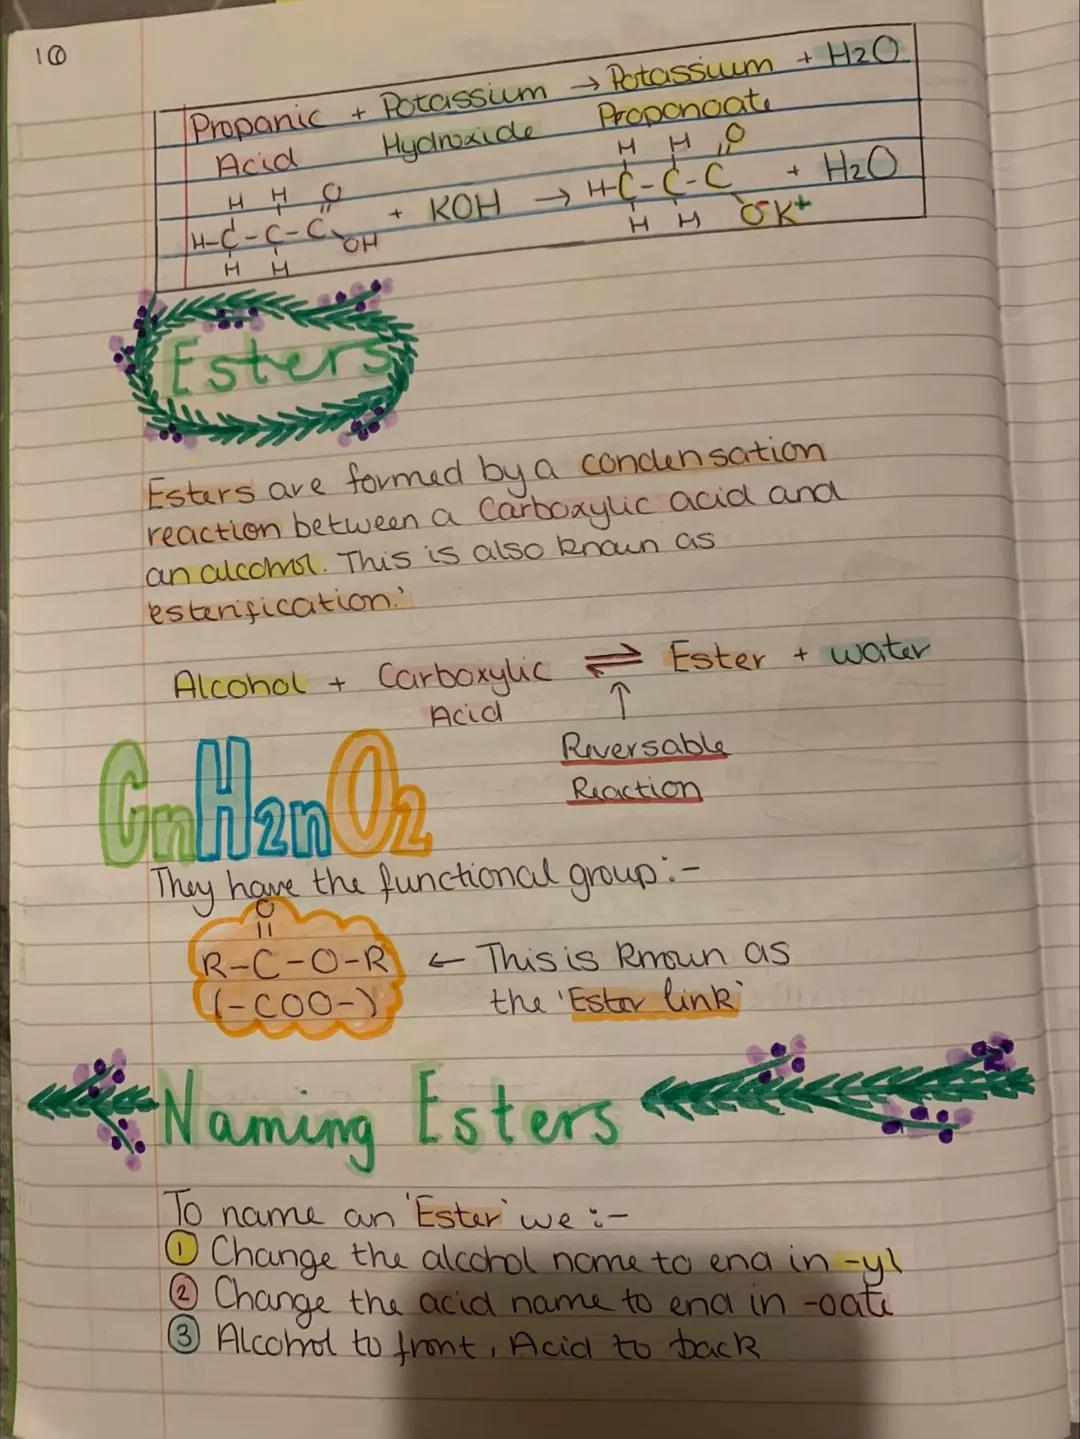 10
Propanic + Potassium → Potassium + H2O
Acid Hydroxide Proponoate
H H O
H-C-C-C OH + KOH → H-C-C-C O-K+ + H2O
H H
H H O
H H
Esters
Esters are formed by a condensation
reaction between a Carboxylic acid and
an alcohol. This is also known as
'esterification.'
Alcohol + Carboxylic ⇌ Ester + water
Acid ↑
Reversable
Reaction
CnH2nO2
They have the functional group:-
O
||
R-C-O-R ← This is known as
(-COO-) the 'Ester link'
Naming Esters
To name an 'Ester' we :-
① Change the alcohol name to end in -yl
② Change the acid name to end in -oate
③ Alcohol to front, Acid to back